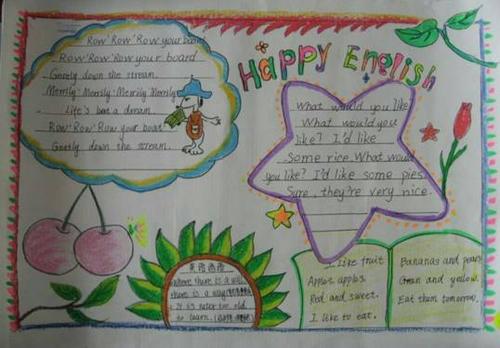 Row' Row' Row your board
Row' Row' Row your board
Gently down the stream.
Merrily Merrily Merrily Merrily
Life's but a dream.
Row' Row' Row your boat
Gently down the stream.
Happy English
What would you like
What would you
like? I'd like
Some rice. What would
you like? I'd like some pies.
Sure, they're very nice.
英语谚语
where there is a will,
there is a way
It is never too old
to learn.
I like fruit
Apples apples.
Red and sweet.
I like to eat.
Bananas and pears
Green and yellow.
Eat them tomorrow.